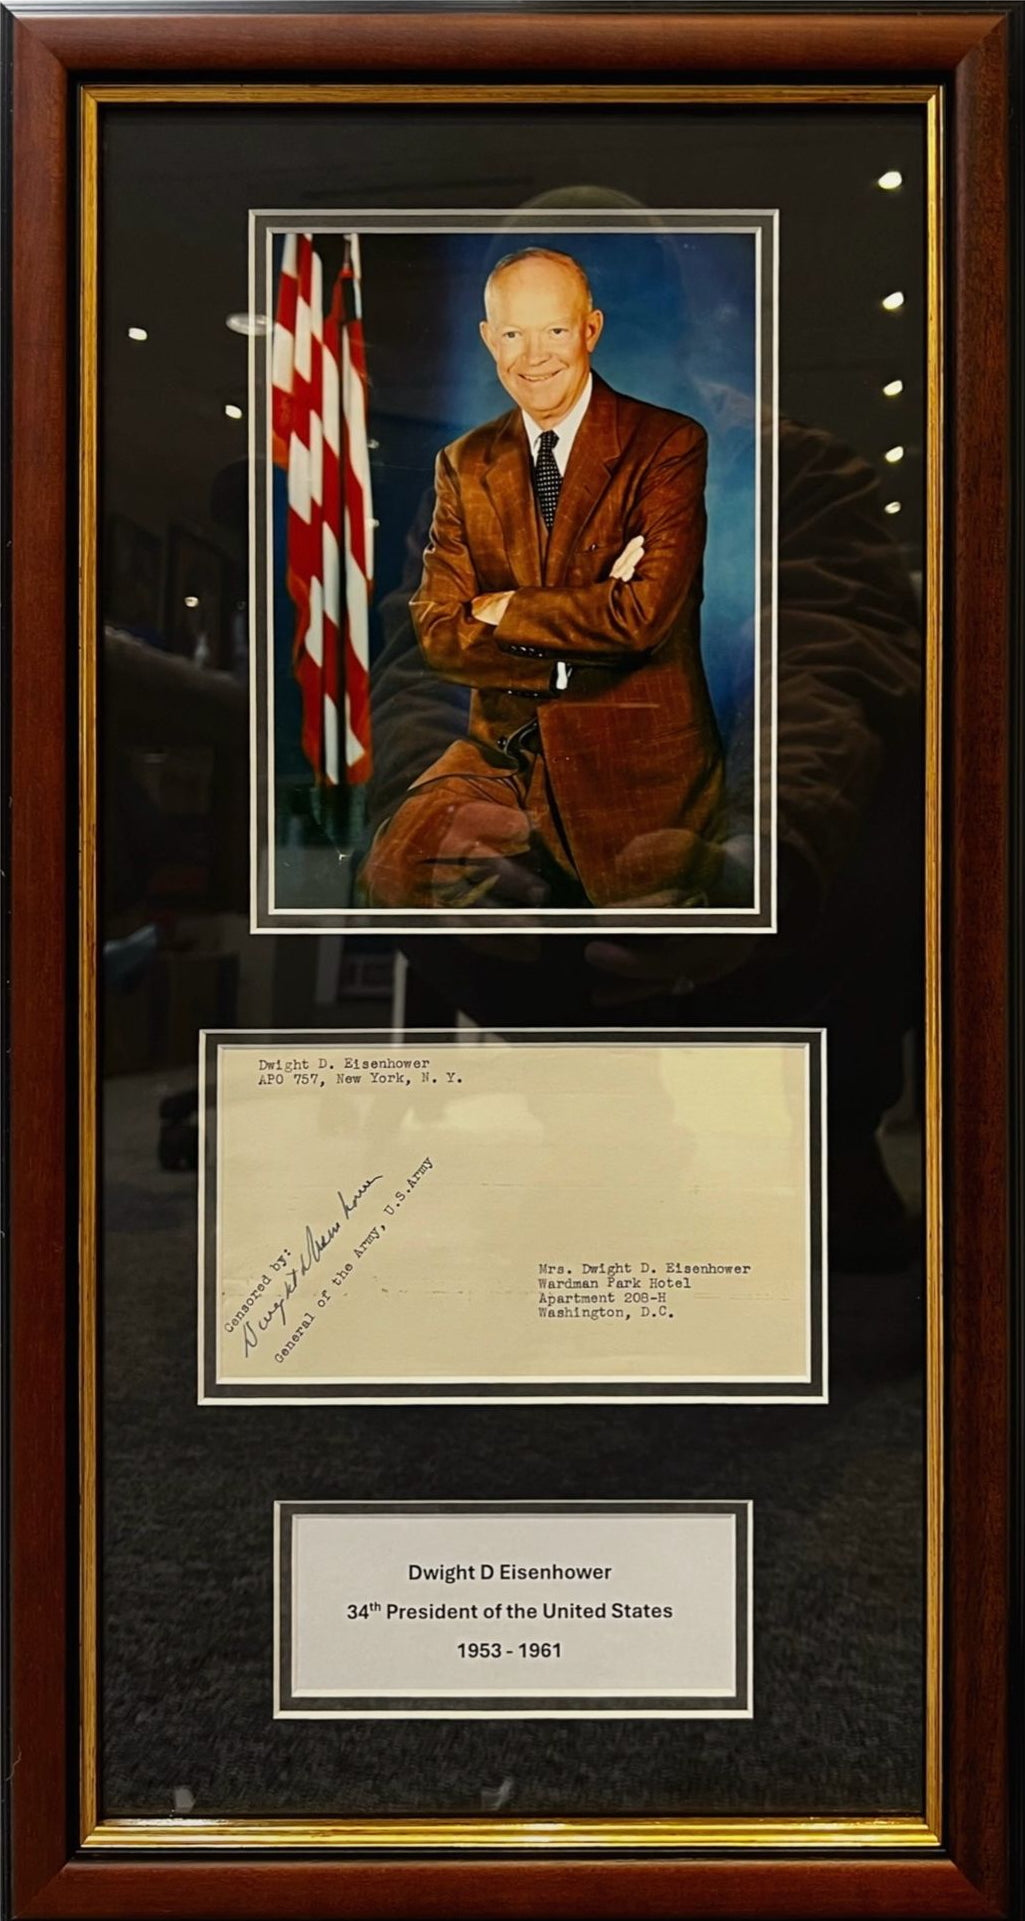 Dwight D. Eisenhower
APO 757, New York, N. Y.
Censored by:
Dwight D Eisenhower
General of the Army, U.S.Army
Mrs. Dwight D. Eisenhower
Wardman Park Hotel
Apartment 208-H
Washington, D.C.
Dwight D Eisenhower
34th President of the United States
1953 - 1961